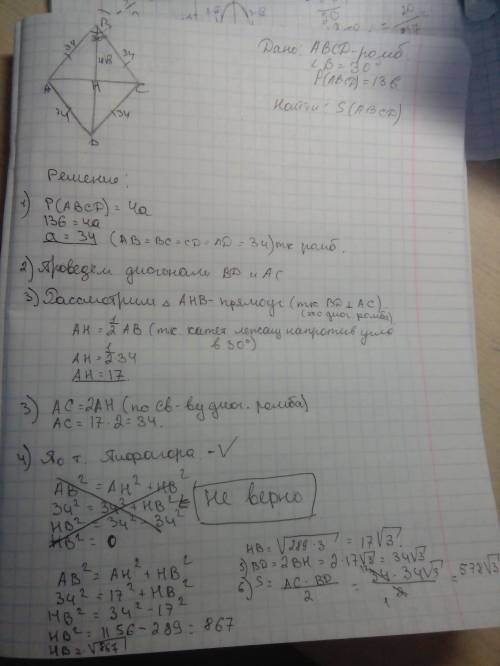 Дано: ABCD-ромб
∠B = 30°
P(ABCD)=136
Найти: S(ABCD)
B
30
34
34
48
A
H
C
34
34
D
Решение:
1) P(ABCD) = 4a
136 = 4a
a = 34 (AB=BC=CD=AD=34) тк ромб.
2) Проведём диогонали BD и AC
3) Рассмотрим △ AHB - прямоуг (тк BD ⊥ AC)
(по диог. ромба)
AH = 1/2 AB (тк катет лежащ напротив угла
в 30°)
AH = 1/2 34
AH = 17
3) AC = 2AH (по св-ву диог. ромба)
AC = 17 · 2 = 34.
4) По т. Пифагора - √
AB² = AH² + HB²
34² = 34² + HB²
HB² = 34² 34²
HB² = 0
Не верно
AB² = AH² + HB²
34² = 17² + HB²
HB² = 34² - 17²
HB² = 1156 - 289 = 867
HB = √867
HB = √289·3 = 17√3.
5) BD = 2BH = 2·17√3 = 34√3
6) S = AC · BD / 2 = 34 · 34√3 / 2 = 578√3